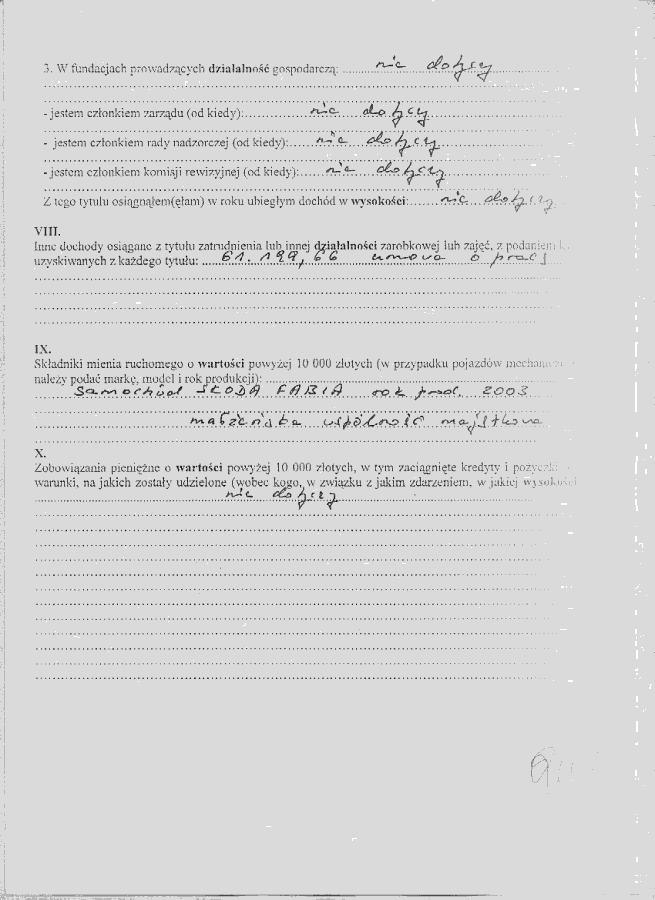 3. W fundacjach prowadzących działalność gospodarczą: nie dotyczy
- jestem członkiem zarządu (od kiedy): nie dotyczy
- jestem członkiem rady nadzorczej (od kiedy): nie dotyczy
- jestem członkiem komisji rewizyjnej (od kiedy): nie dotyczy
Z tego tytułu osiągnąłem(ęłam) w roku ubiegłym dochód w wysokości: nie dotyczy
VIII.
Inne dochody osiągane z tytułu zatrudnienia lub innej działalności zarobkowej lub zajęć, z podaniem
uzyskiwanych z każdego tytułu: 61.199,66 umowa o pracę
IX.
Składniki mienia ruchomego o wartości powyżej 10 000 złotych (w przypadku pojazdów
należy podać markę, model i rok produkcji):
Samochód SKODA FABIA rok prod. 2003
małżeńska wspólność majątkowa
X.
Zobowiązania pieniężne o wartości powyżej 10 000 złotych, w tym zaciągnięte kredyty i
warunki, na jakich zostały udzielone (wobec kogo, w związku z jakim zdarzeniem, w jakiej wysokości
nie dotyczy